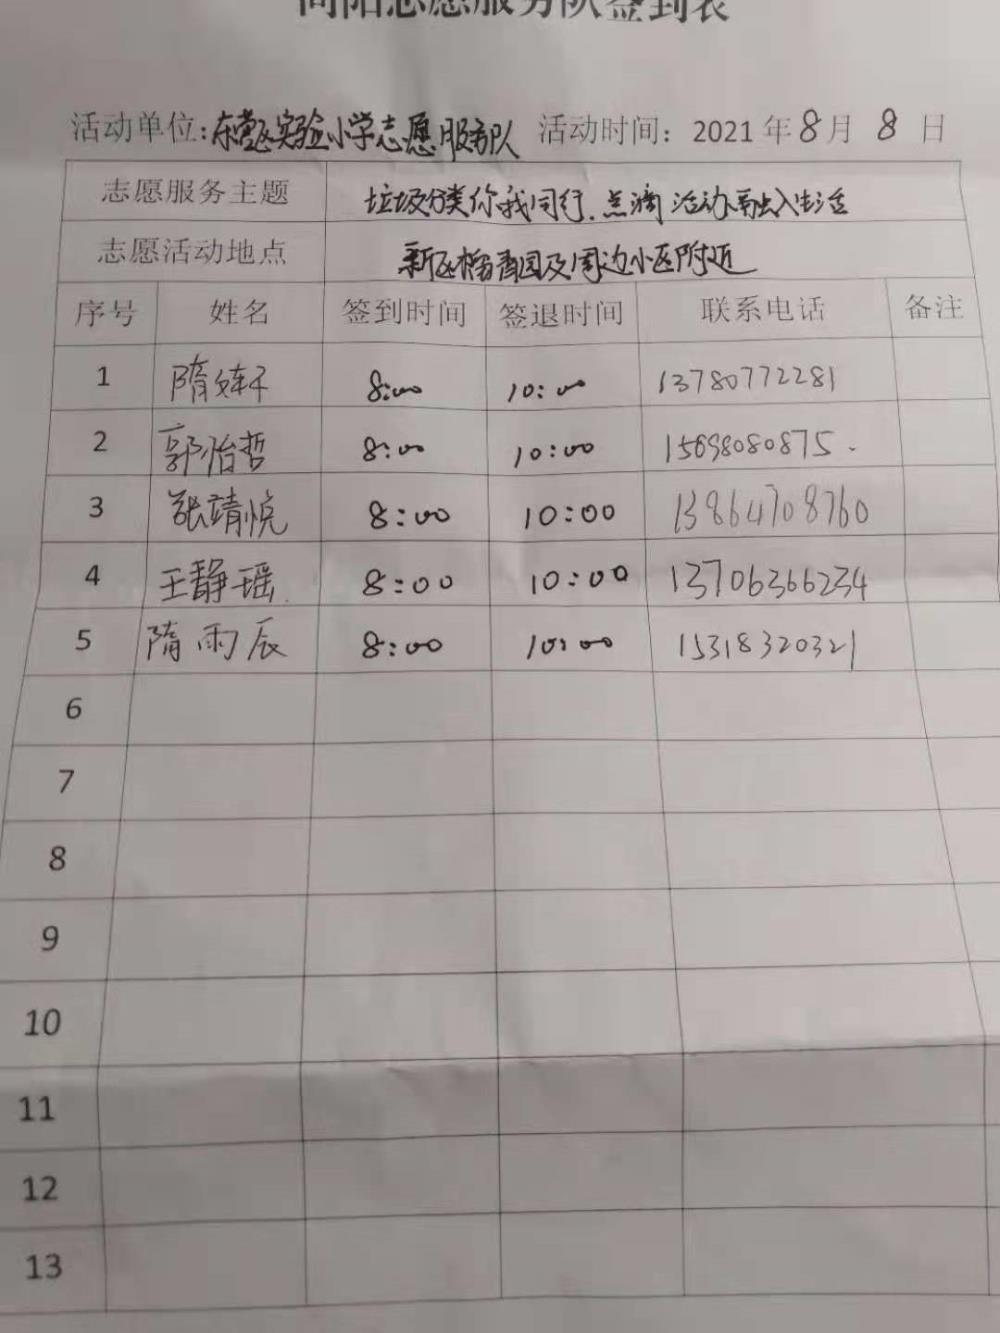 向阳志愿服务队签到表
活动单位:东营区实验小学志愿服务队 活动时间: 2021年8月8日
志愿服务主题 垃圾分类你我同行.点滴活动融入生活
志愿活动地点 新区梅香园及周边小区附近
序号 姓名 签到时间 签退时间 联系电话 备注
1 隋文轩 8:00 10:00 13780772281
2 郭怡哲 8:00 10:00 15698080875.
3 张靖悦 8:00 10:00 13864708760
4 王静瑶 8:00 10:00 13706366234
5 隋雨辰 8:00 10:00 15318320321
6
7
8
9
10
11
12
13